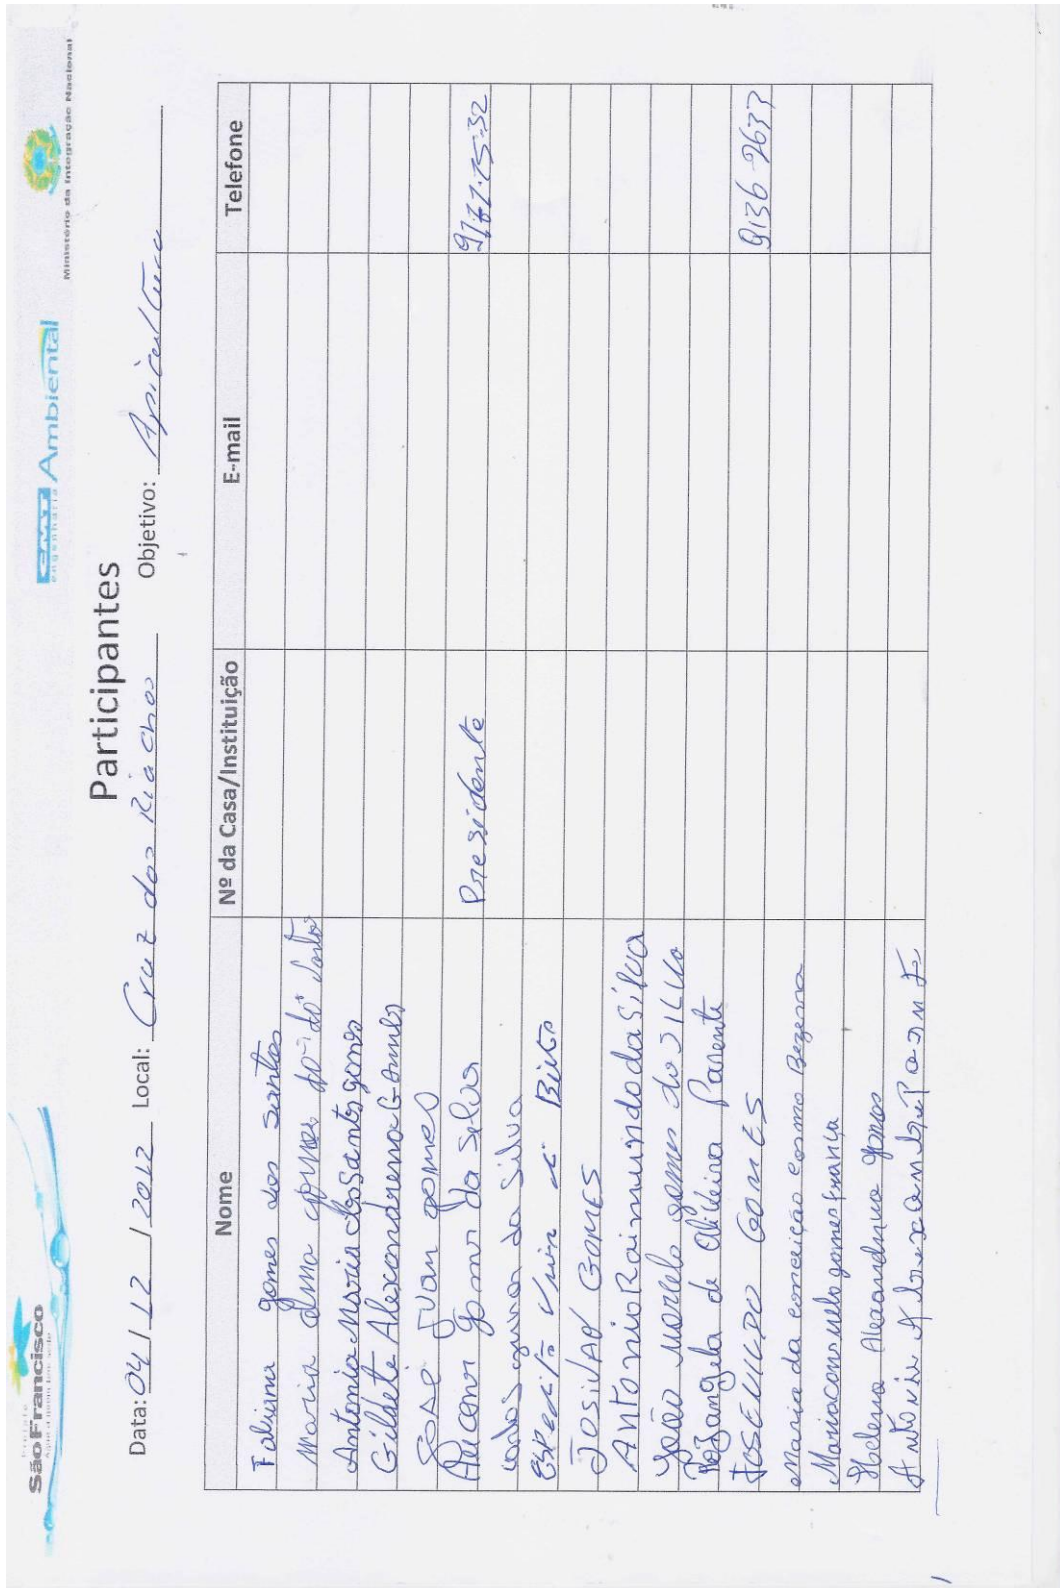 Projeto
São Francisco
CMT Ambiental
engenharia
Ministério da Integração Nacional
Participantes
Data: 04 / 12 / 2012 Local: Cruz dos Riachos Objetivo: Apicultura
Nome Nº da Casa/Instituição E-mail Telefone
Fabiana gomes dos santos
Maria gomes
Antonia Maria dos Santos gomes
Gildete Alexandrina Gomes
José Ivan gomes
gomes da Selva Presidente 9977.75.32
da Silva
Espedito de Brito
JOSIVAO GOMES
Antonio Raimundo da Silva
João gomes da SILVA
Rozangela de Oliveira Parente
JOSENILDO GOMES 9136-2633
Maria da conceição cosmo Bezerra
gomes frança
Helena Alexandrina gomes
Antônia
1